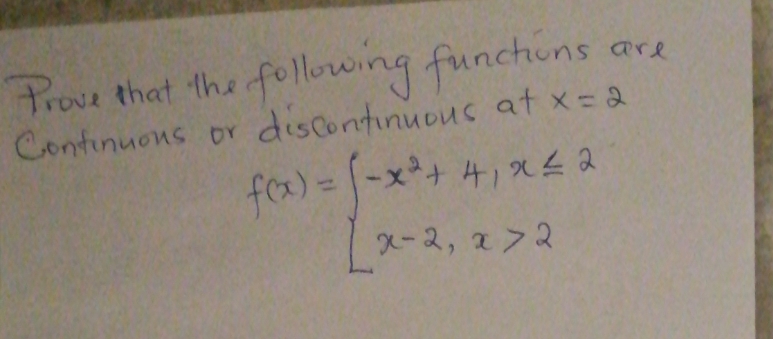 Prove that the following functions are
Continuous or discontinuous at x = 2
f(x) = { -x² + 4, x ≤ 2
x - 2, x > 2